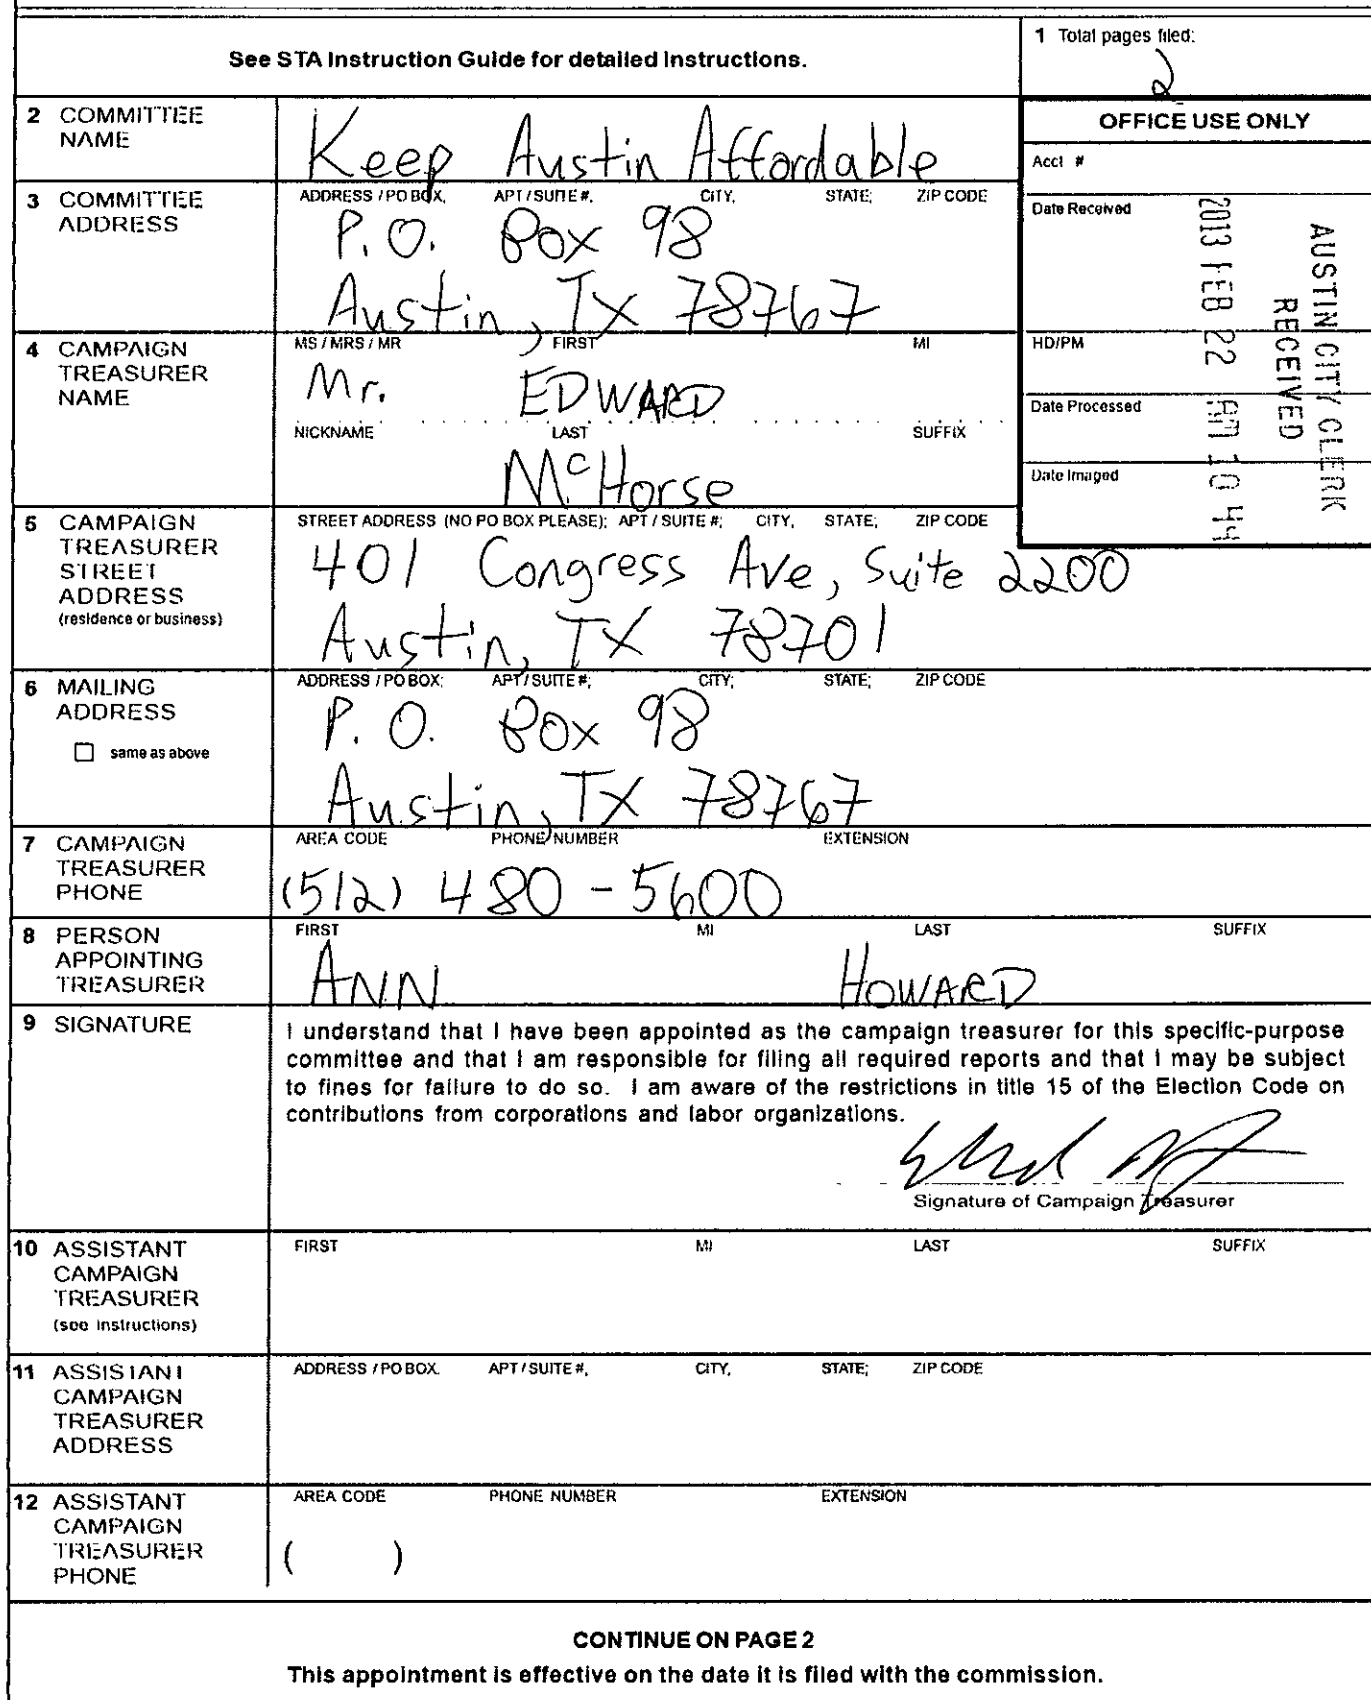 See STA Instruction Guide for detailed instructions.
1 Total pages filed:
2
2 COMMITTEE NAME
Keep Austin Affordable
OFFICE USE ONLY
Acct #
Date Received
HD/PM
Date Processed
Date Imaged
AUSTIN CITY CLERK
RECEIVED
2013 FEB 22 AM 10 44
3 COMMITTEE ADDRESS
ADDRESS / PO BOX, APT / SUITE #, CITY, STATE; ZIP CODE
P.O. Box 98
Austin, TX 78767
4 CAMPAIGN TREASURER NAME
MS / MRS / MR FIRST MI
Mr. EDWARD
NICKNAME LAST SUFFIX
McHorse
5 CAMPAIGN TREASURER STREET ADDRESS
(residence or business)
STREET ADDRESS (NO PO BOX PLEASE); APT / SUITE #; CITY, STATE; ZIP CODE
401 Congress Ave, Suite 2200
Austin, TX 78701
6 MAILING ADDRESS
☐ same as above
ADDRESS / PO BOX; APT / SUITE #; CITY; STATE; ZIP CODE
P. O. Box 98
Austin, TX 78767
7 CAMPAIGN TREASURER PHONE
AREA CODE PHONE NUMBER EXTENSION
(512) 480-5600
8 PERSON APPOINTING TREASURER
FIRST MI LAST SUFFIX
ANN HOWARD
9 SIGNATURE
I understand that I have been appointed as the campaign treasurer for this specific-purpose
committee and that I am responsible for filing all required reports and that I may be subject
to fines for failure to do so. I am aware of the restrictions in title 15 of the Election Code on
contributions from corporations and labor organizations.
Signature of Campaign Treasurer
10 ASSISTANT CAMPAIGN TREASURER
(see instructions)
FIRST MI LAST SUFFIX
11 ASSISTANT CAMPAIGN TREASURER ADDRESS
ADDRESS / PO BOX. APT / SUITE #, CITY, STATE; ZIP CODE
12 ASSISTANT CAMPAIGN TREASURER PHONE
AREA CODE PHONE NUMBER EXTENSION
( )
CONTINUE ON PAGE 2
This appointment is effective on the date it is filed with the commission.